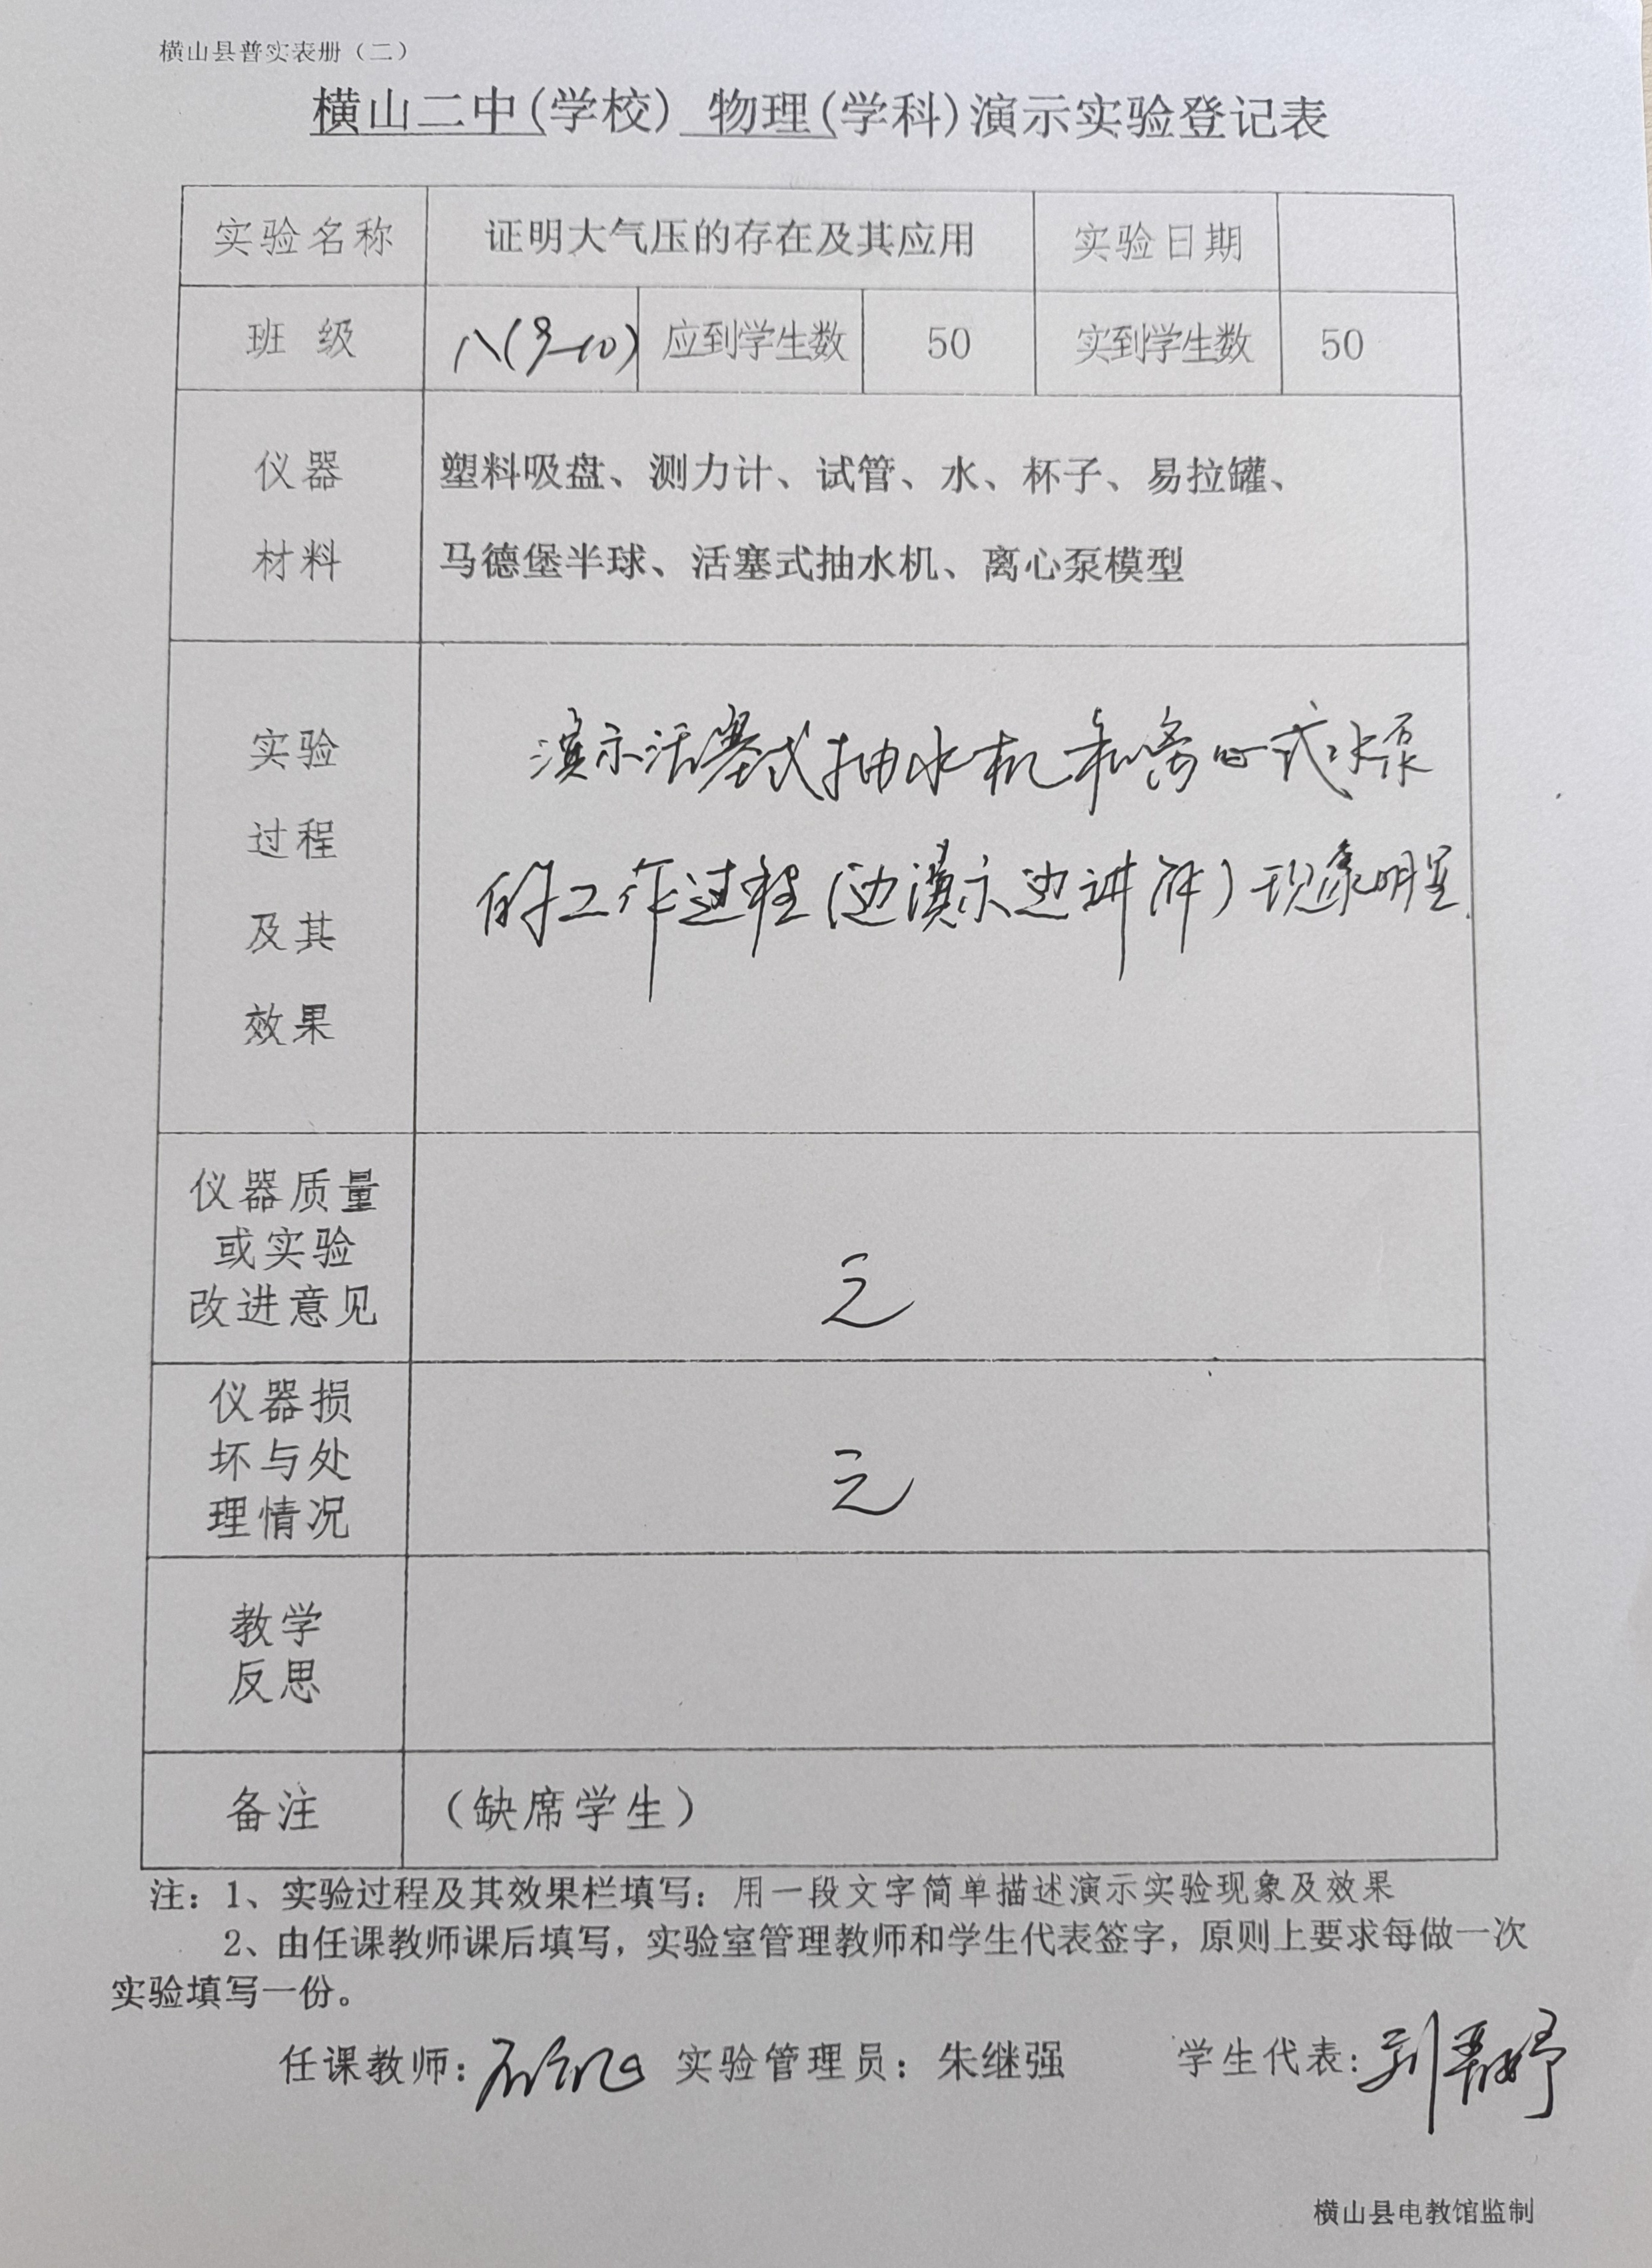 横山县普实表册（二）
横山二中(学校) 物理(学科)演示实验登记表
实验名称 证明大气压的存在及其应用 实验日期
班 级 八(9-10) 应到学生数 50 实到学生数 50
仪器
材料
塑料吸盘、测力计、试管、水、杯子、易拉罐、
马德堡半球、活塞式抽水机、离心泵模型
实验
过程
及其
效果
演示活塞式抽水机和离心式水泵
的工作过程(边演示边讲解)现象明显.
仪器质量
或实验
改进意见
无
仪器损
坏与处
理情况
无
教学
反思
备注 （缺席学生）
注：1、实验过程及其效果栏填写：用一段文字简单描述演示实验现象及效果
2、由任课教师课后填写，实验室管理教师和学生代表签字，原则上要求每做一次
实验填写一份。
任课教师： 实验管理员：朱继强 学生代表：刘
横山县电教馆监制